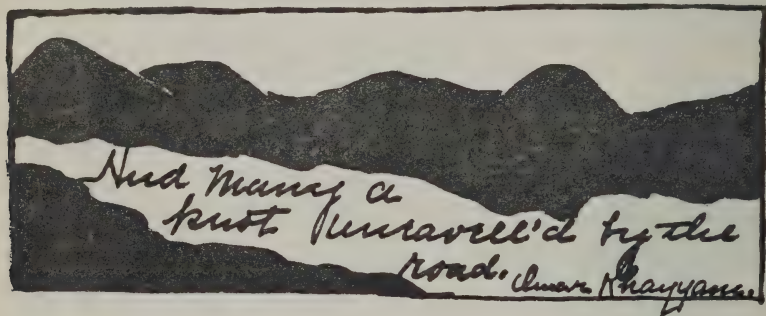 And many a
knot unravell'd by the
road. Omar Khayyam.